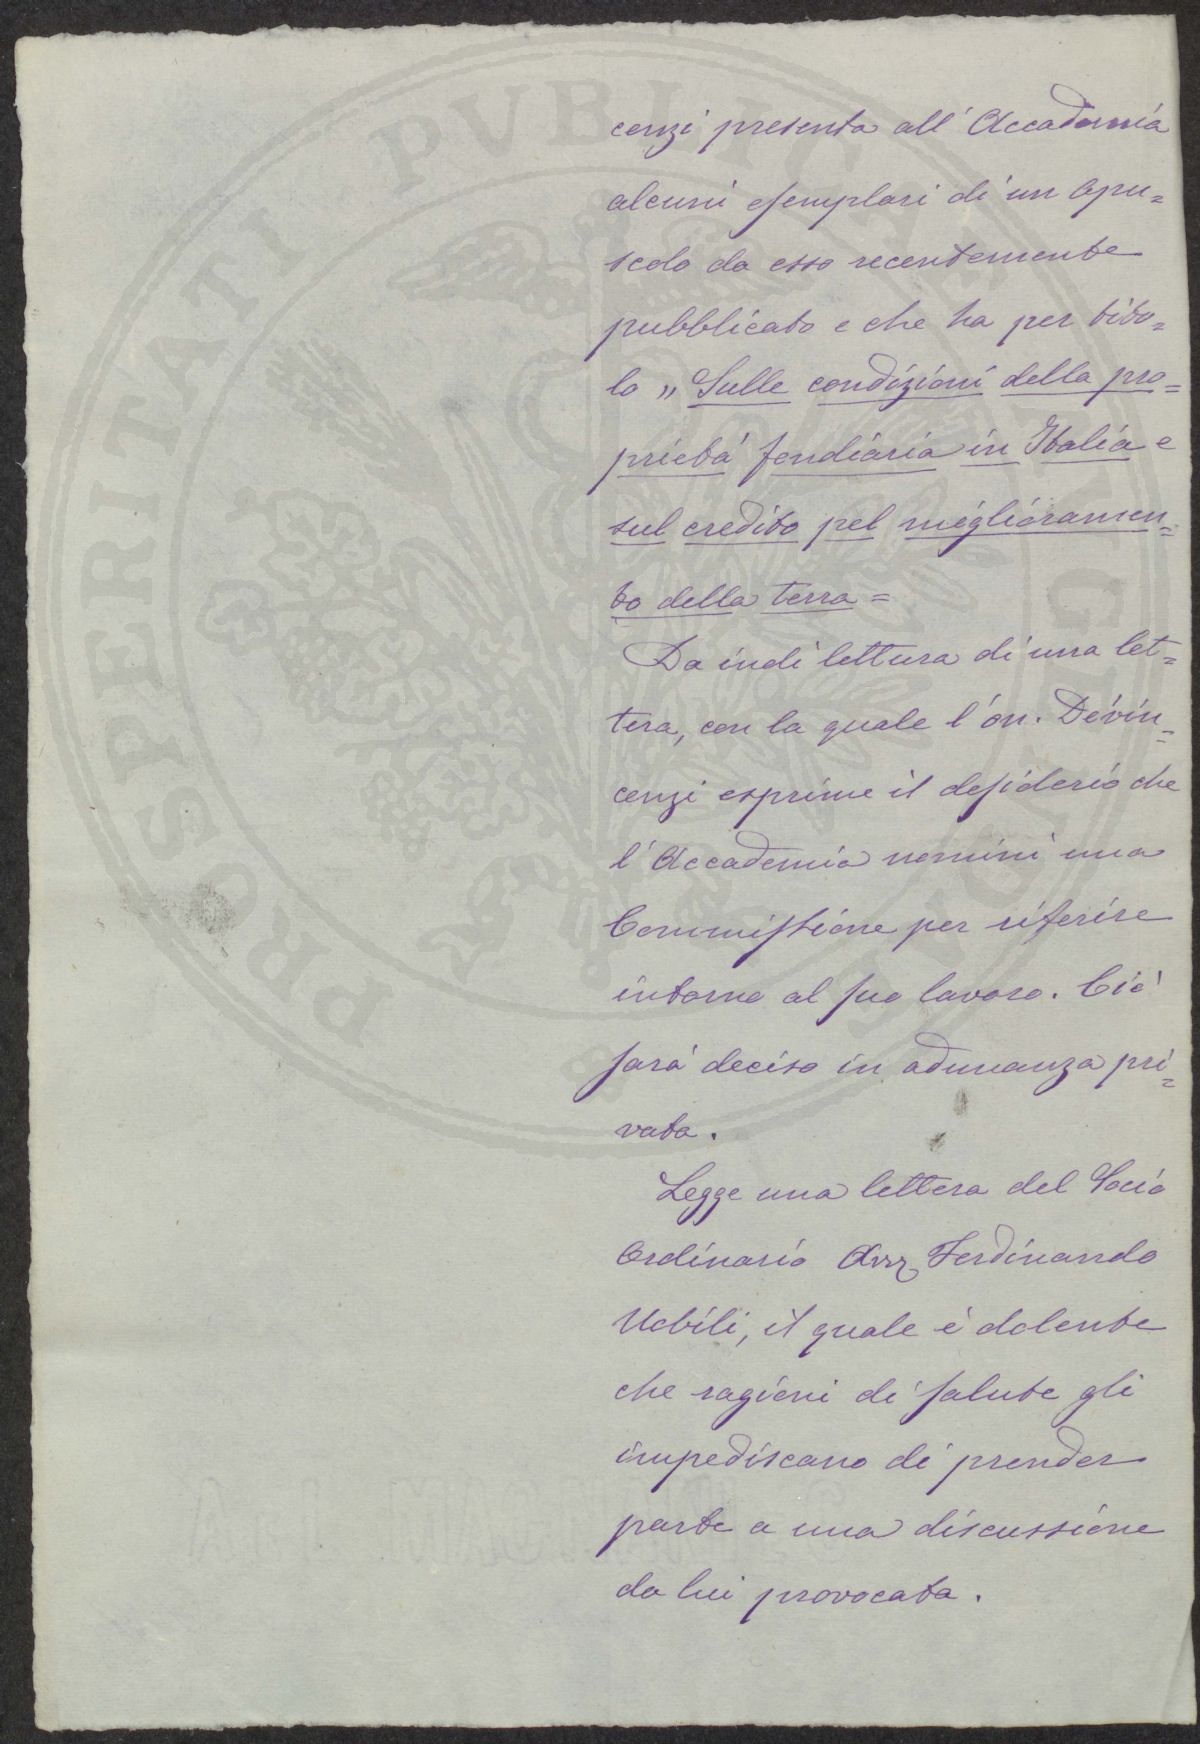 cenzi presenta all'Accademia
alcuni esemplari di un Opu=
scolo da esso recentemente
pubblicato e che ha per tito=
lo „ Sulle condizioni della pro=
prietà fondiaria in Italia e
sul credito pel miglioramen=
to della terra =
Da indi lettura di una let=
tera, con la quale l'on. Devin=
cenzi esprime il desiderio che
l'Accademia nomini una
Commissione per riferire
intorno al suo lavoro. Ciò
sarà deciso in adunanza pri=
vata.
Legge una lettera del Socio
Ordinario Avv Ferdinando
Nobili, il quale è dolente
che ragioni di salute gli
impediscano di prender
parte a una discussione
da lui provocata.
PROSPERITATI PVBLICAE